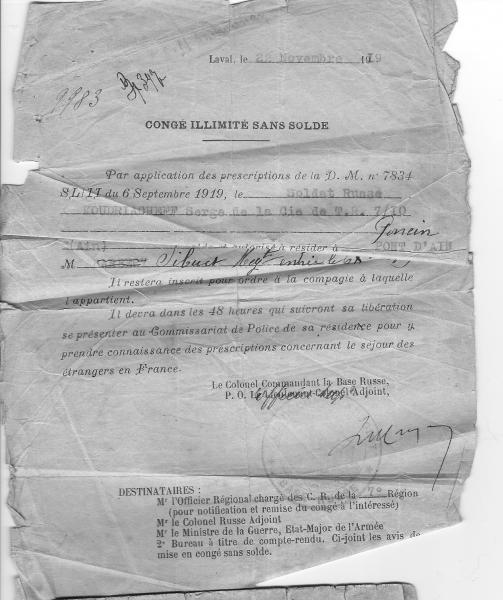 Laval, le 22 Novembre 1919
9983
CONGÉ ILLIMITÉ SANS SOLDE
Par application des prescriptions de la D. M. n° 7834
du 6 Septembre 1919, le Soldat Russe
KOUDRIACHEFF Serge de la Cie de T.R. 7/10
Poncin
(Ain) autorisé à résider à PONT D'AIN
M
Il restera inscrit pour ordre à la compagie à laquelle
l'appartient.
Il decra dans les 48 heures qui suicront sa libération
se présenter au Commissariat de Police de sa résidence pour y
prendre connaissance des prescriptions concernant le sejour des
étrangers en France.
Le Colonel Commandant la Base Russe,
P. O. Le Lieutenant-Colonel Adjoint,
DESTINATAIRES :
Mr l'Officier Régional chargé des C. R. de la 7° Région
(pour notification et remise du congé à l'intéressé)
Mr le Colonel Russe Adjoint
Mr le Ministre de la Guerre, Etat-Major de l'Armée
2e Bureau à titre de compte-rendu. Ci-joint les avis de
mise en congé sans solde.